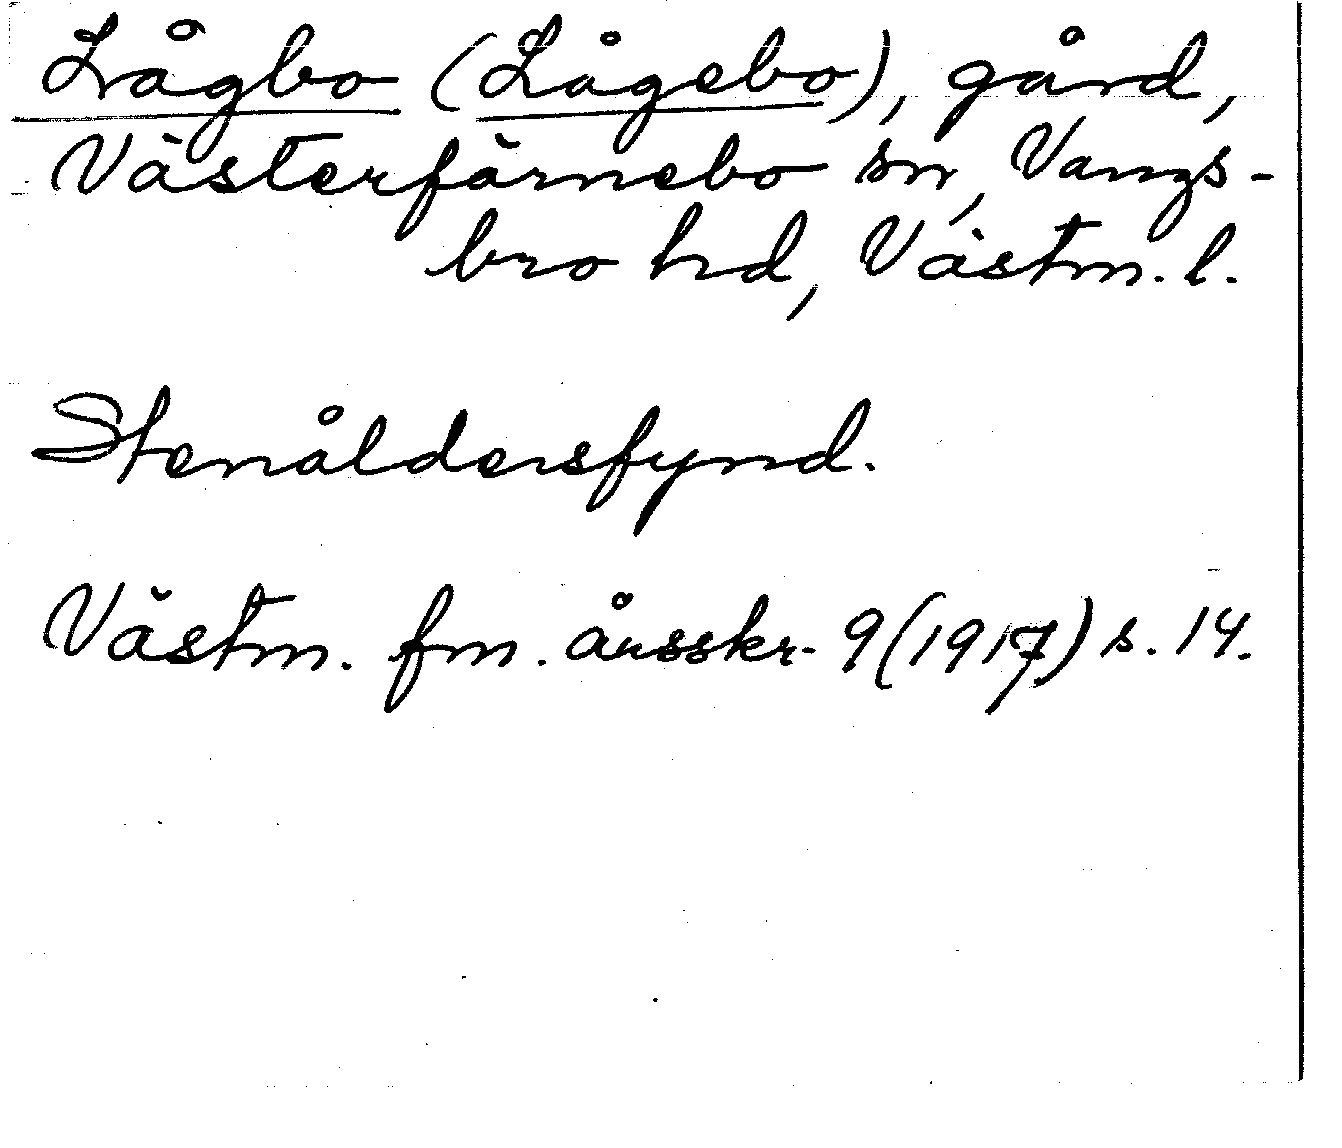 Lågbo (Lågebo), gård,
Västerfärnebo sn, Vangs-
bro hd, Västm. l.
Stenåldersfynd.
Västm. fm. årsskr. 9(1917) s. 14.